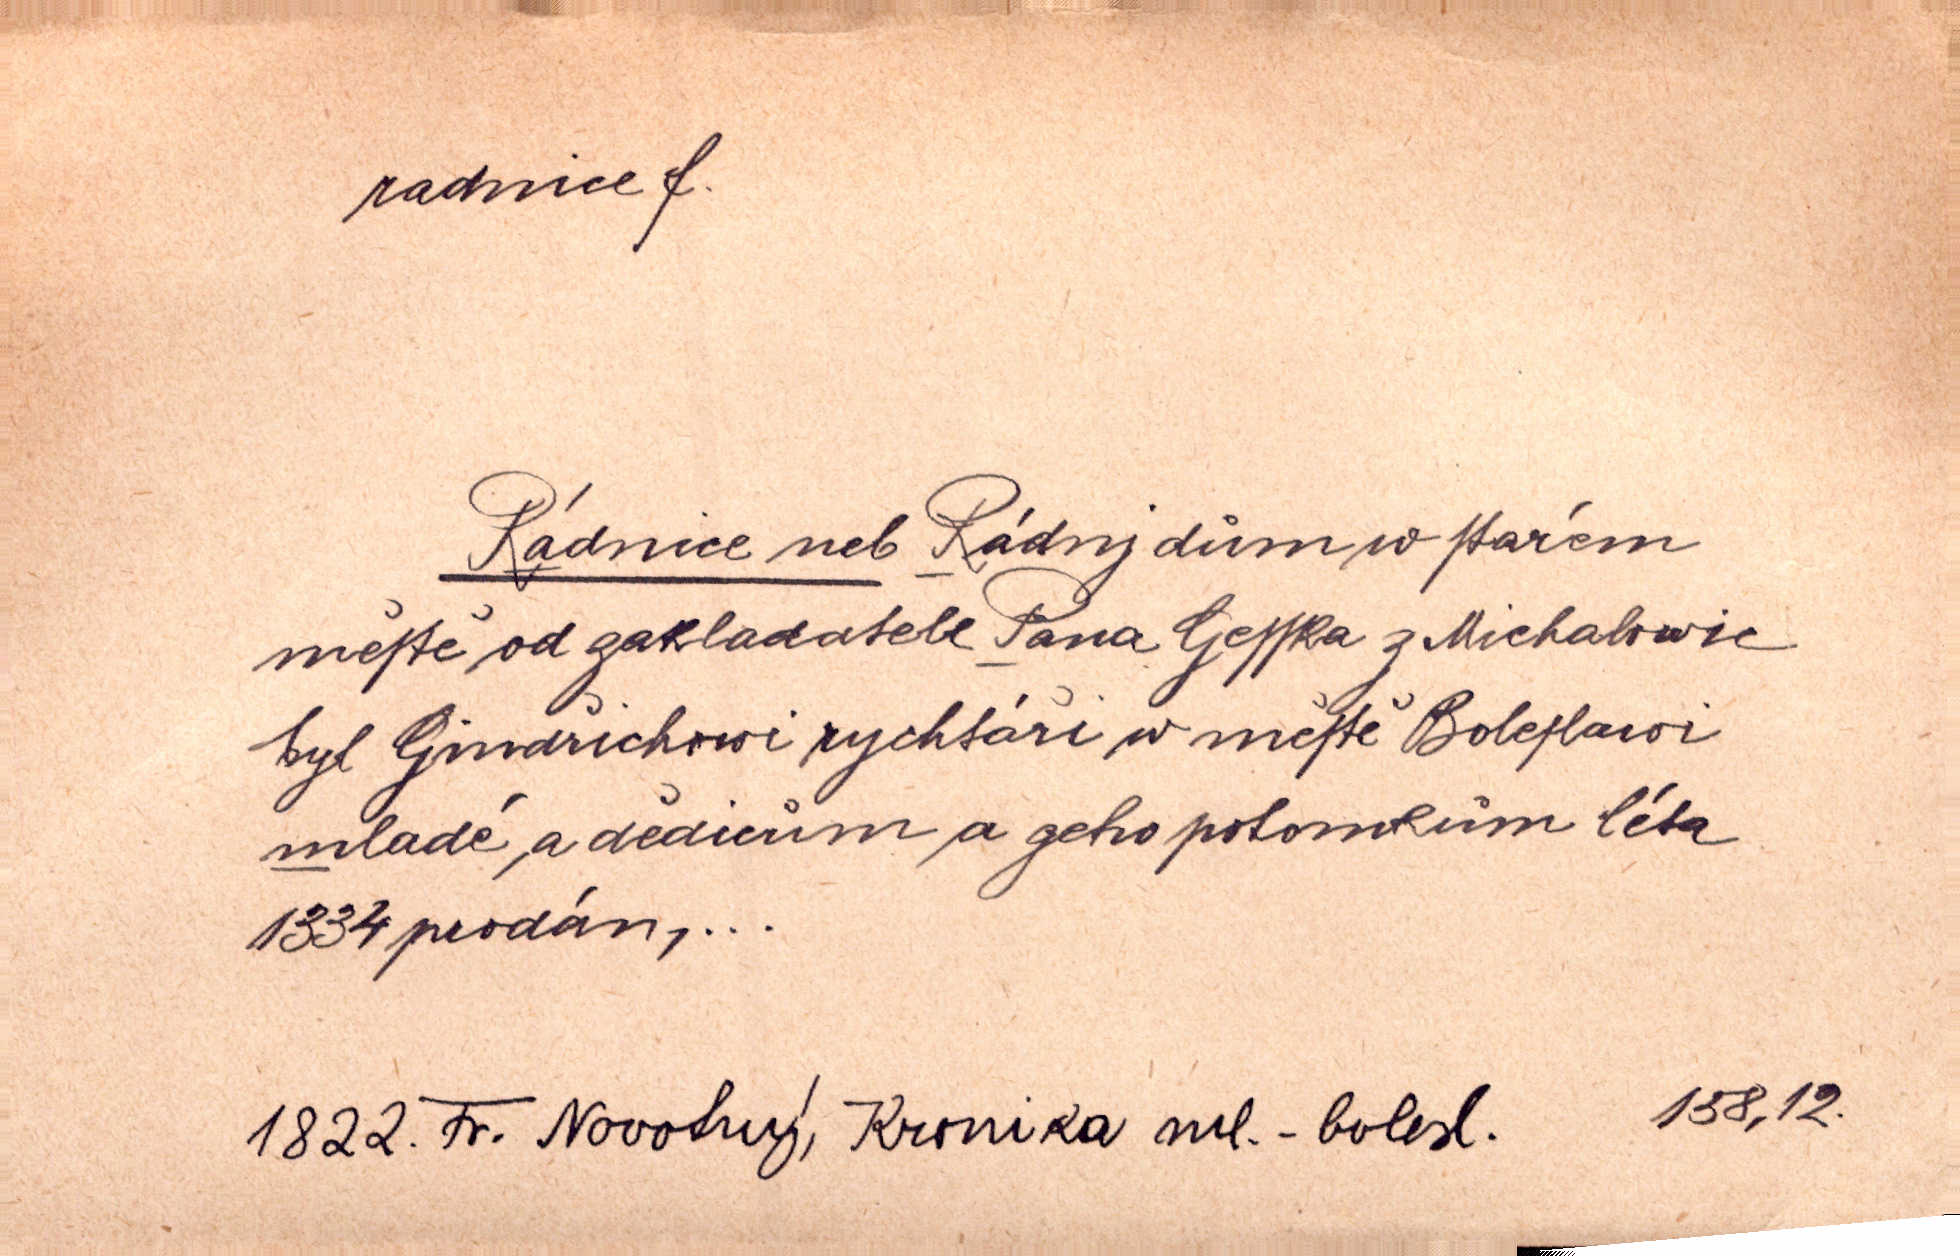 radnice f.
Rádnice neb Rádnj dům w ſtarém
měſtě od zakladatele Pana Geſſka z Michalowic
byl Gindřichowi rychtáři w měſtě Boleſlawi
mladé, a dědicům a geho potomkům léta
1334 prodán,...
1822. Fr. Novotný, Kronika ml.-bolesl. 158,12.